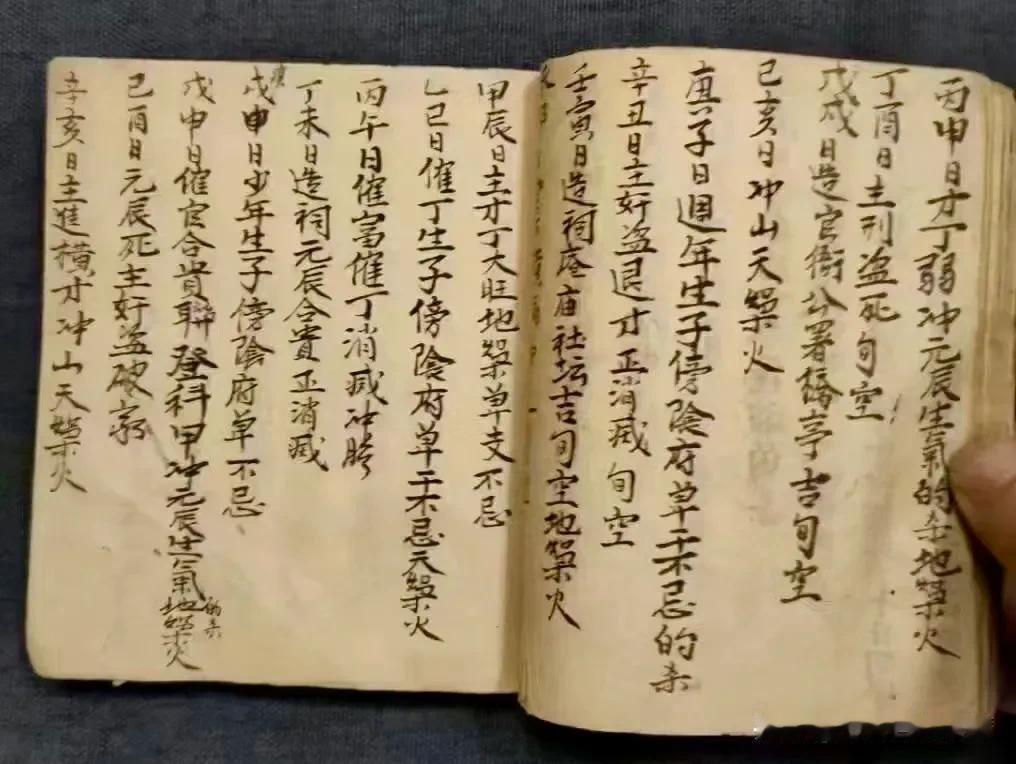 丙申日才丁弱冲元辰生氣的杀地𣘚火
丁酉日主刑盗死旬空
戊戌日造官衙公署橋亭吉旬空
己亥日冲山天𣘚火
庚子日週年生子傍陰府草干不忌的杀
辛丑日主奸盗退才正消滅旬空
壬寅日造祠庵庙社坛吉旬空地𣘚火
甲辰日主才丁大旺地𣘚草支不忌
乙巳日催丁生子傍陰府草干不忌天𣘚火
丙午日催富催丁消滅冲
丁未日造祠元辰合貴正消滅
戊申日少年生子傍陰府草不忌
戊申日催官合貴聯登科甲冲元辰生氣地𣘚火的杀
己酉日元辰死主奸盗破
辛亥日主進横才冲山天𣘚火